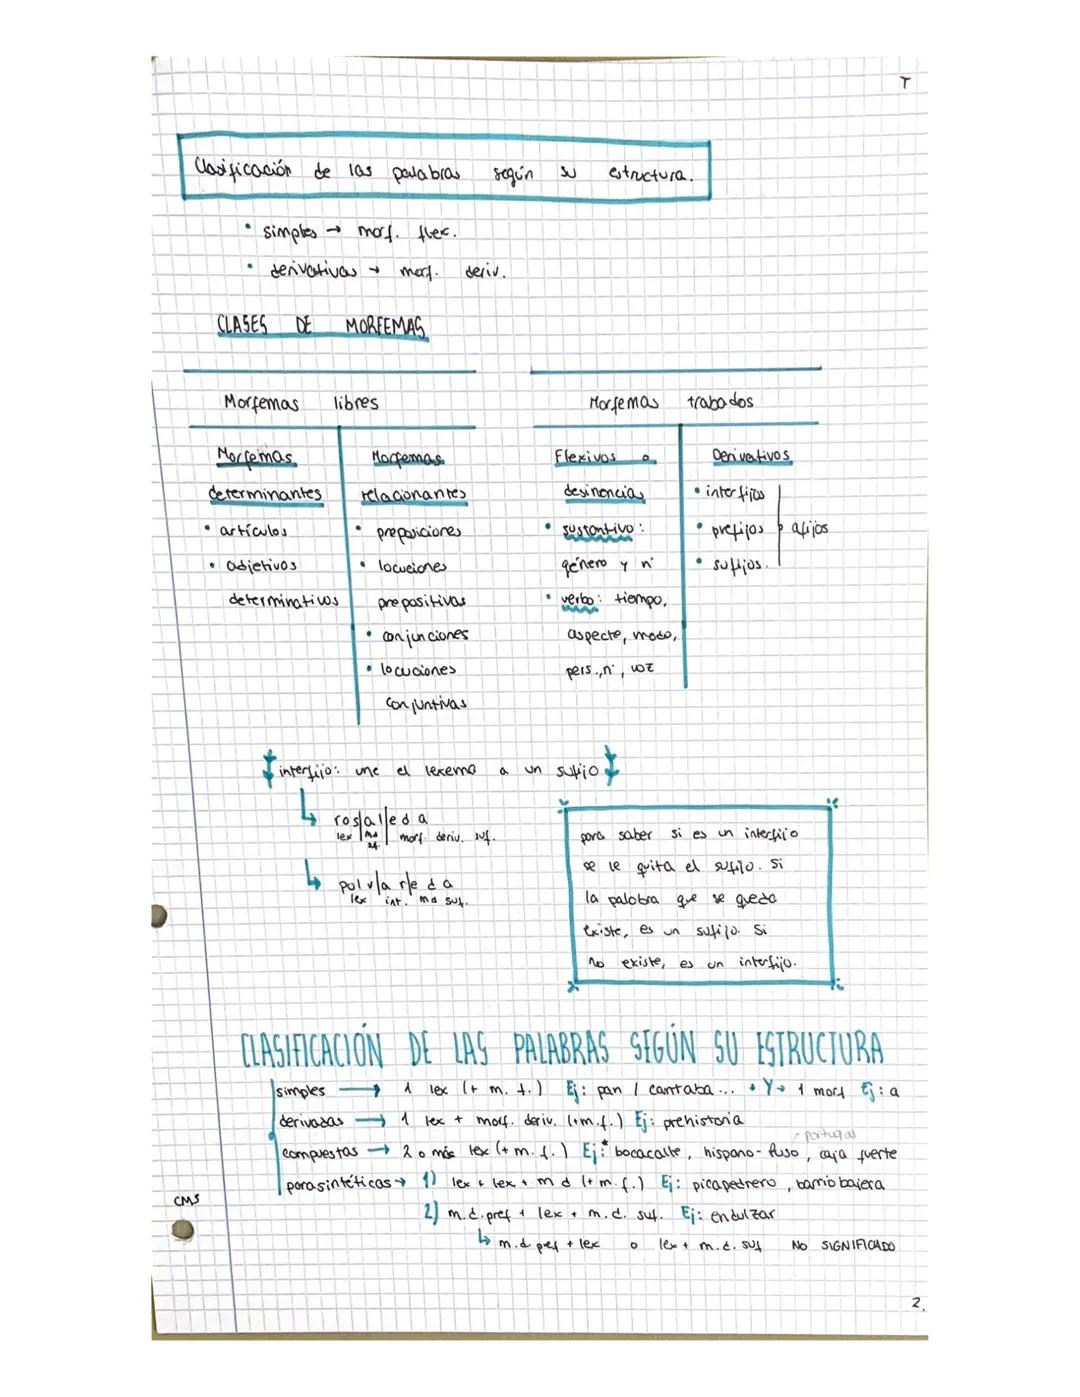 T
Clasificación de las palabras según su estructura.
• simples → morf. flex.
• derivativas → morf. deriv.
CLASES DE MORFEMAS
Morfemas libres
Morfemas determinantes
• artículos
• adjetivos
determinativos
Morfemas relacionantes
• preposiciones
• locuciones
prepositivas
• conjunciones
• locuciones
conjuntivas
Morfemas trabados
Flexivos o
desinencias
• sustantivo:
género y nº
• verbo: tiempo,
aspecto, modo,
pers., nº, voz
Derivativos
• interfijos
• prefijos
• sufijos.
afijos
interfijo: une el lexema a un sufijo
↳ ros|al|eda
lex | md suf. | morf. deriv. suf.
↳ polv|ar|eda
lex int. md suf.
para saber si es un interfijo
se le quita el sufijo. Si
la palabra que se queda
existe, es un sufijo. Si
no existe, es un interfijo.
CLASIFICACIÓN DE LAS PALABRAS SEGÚN SU ESTRUCTURA
simples → 1 lex (+ m. f.) Ej: pan / cantaba... • Y → 1 morf Ej: a
derivadas → 1 lex + morf. deriv. (+m.f.) Ej: prehistoria
portugal
compuestas → 2 o más lex (+ m. f.) Ej:* bocacalle, hispano-luso, caja fuerte
parasintéticas → 1) lex + lex + m d (+ m. f.) Ej: picapedrero, barriobajera
CMS
2) m.d. pref + lex + m.d. suf. Ej: endulzar
↳ m.d pref + lex o lex + m.d. suf NO SIGNIFICADO
2.